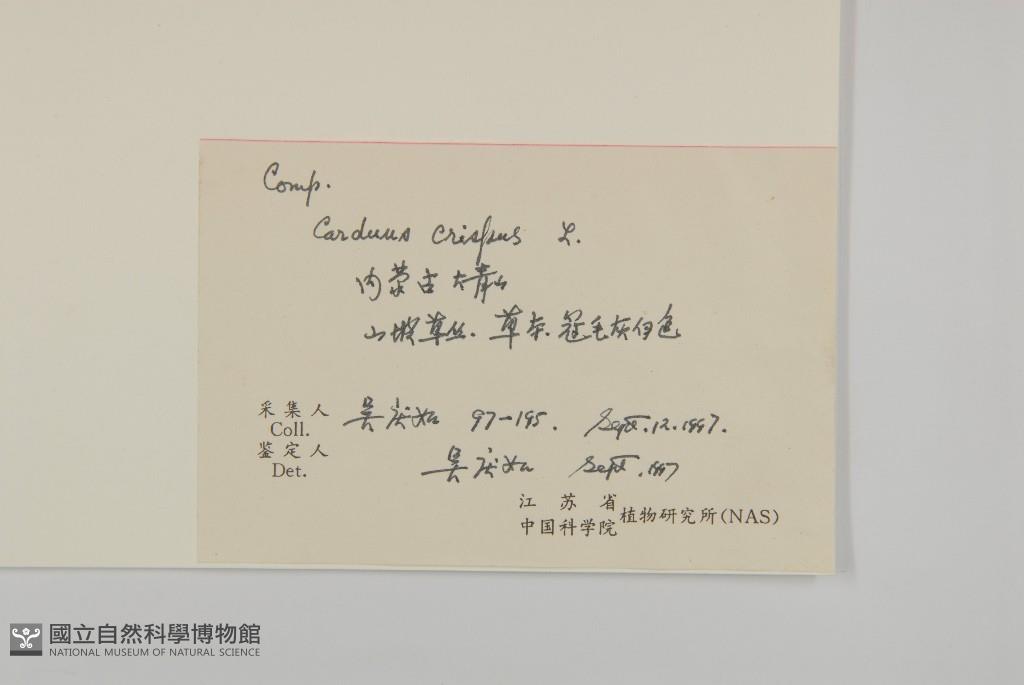 Comp.
Carduus crispus L.
内蒙古大青山
山坡草丛. 草本. 冠毛灰白色
采集人 吴庆如 97-195. Sept. 12. 1997.
Coll.
鉴定人 吴庆如 Sept. 1997
Det.
江苏省
中国科学院 植物研究所(NAS)
國立自然科學博物館
NATIONAL MUSEUM OF NATURAL SCIENCE